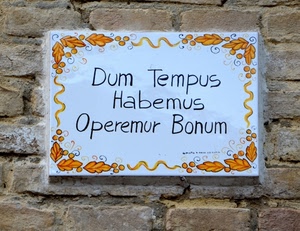 Dum Tempus
Habemus
Operemur Bonum